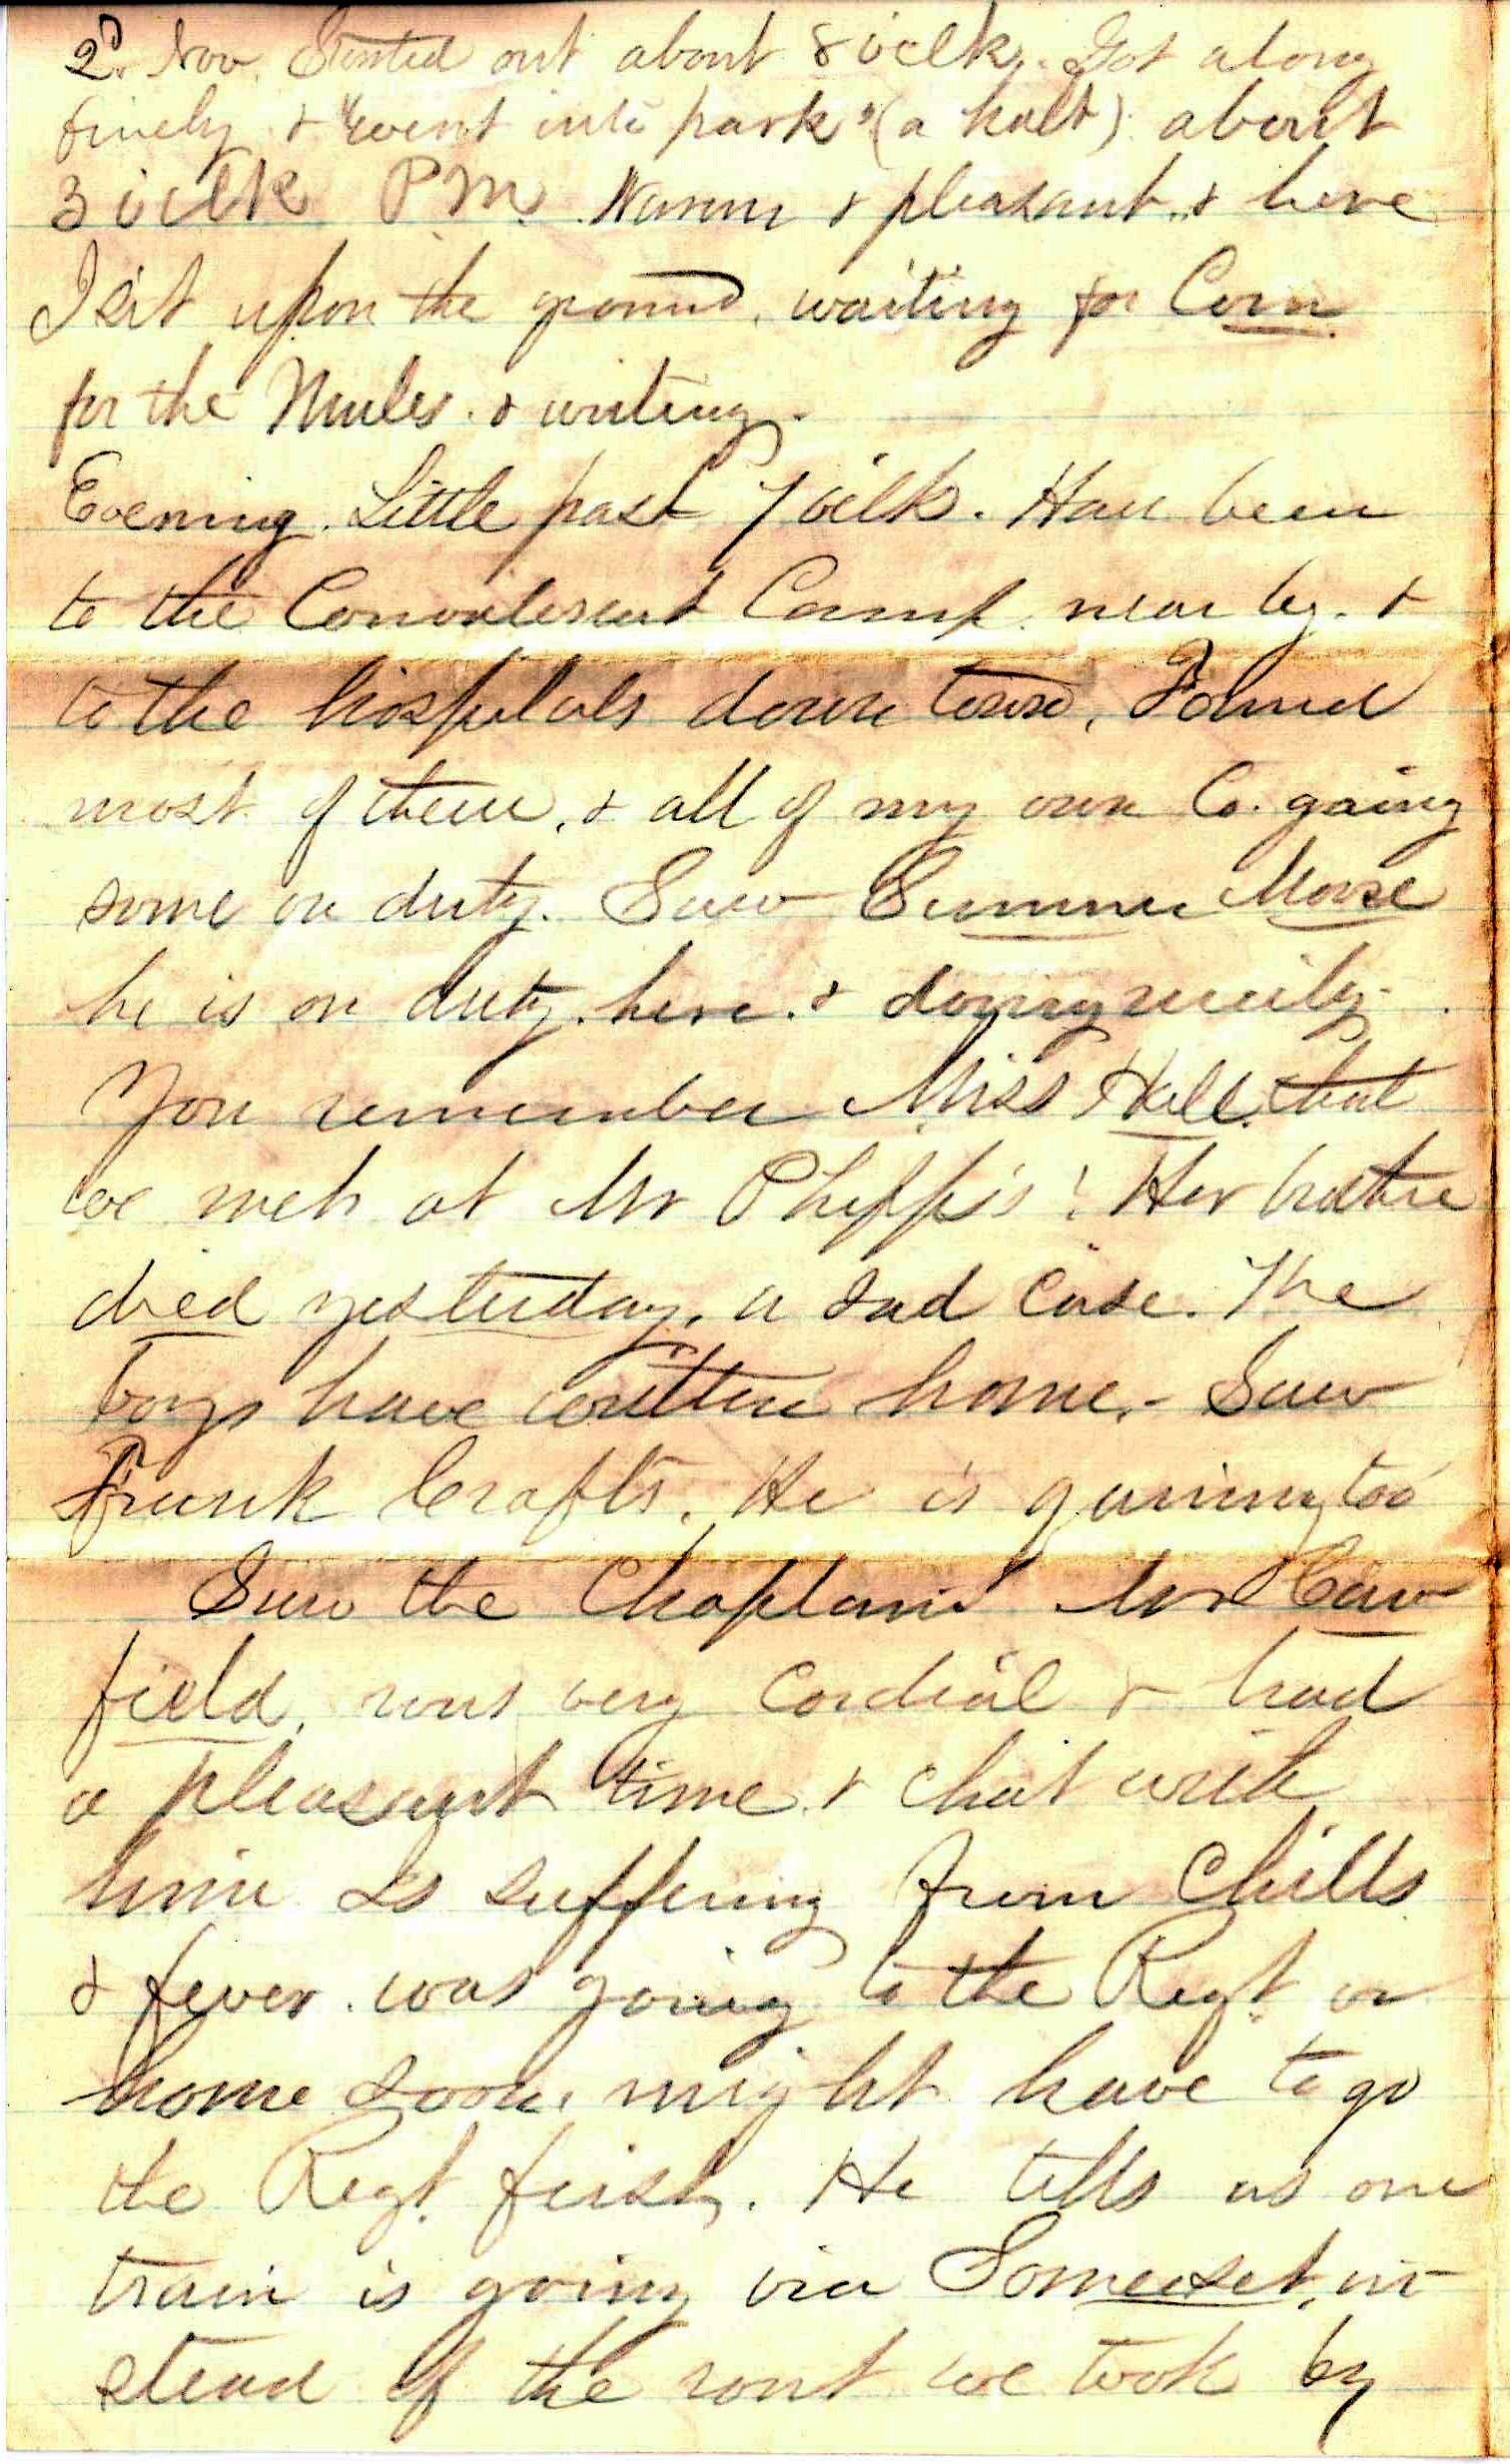 2d. Nov. Started out about 8 oclk. Got along
finely & "went into park" (a halt) about
3 oclk P.M. Warm & pleasant, & here
I sit upon the ground, waiting for Corn
for the Mules. & writing.
Evening. Little past 7 oclk. Have been
to the Convalescent Camp near by. &
to the hospitals down town. Found
most of them, & all of my own Co. gaing
some on duty. Saw Sumner Morse
he is on duty here. & doing nicely.
You remember Miss Hall that
we met at Mr Phipps's! Her brother
died yesterday, a sad case. The
boys have written home. - Saw
Frank Crafts. He is gaining too
Saw the Chaplain Mr Can
field, was very Cordial & had
a pleasant time & chat with
him Is suffering from Chills
& fever. was going to the Regt. or
home soon, might have to go
the Regt. first. He tells us our
train is going via Somerset, in-
stead of the rout we took by